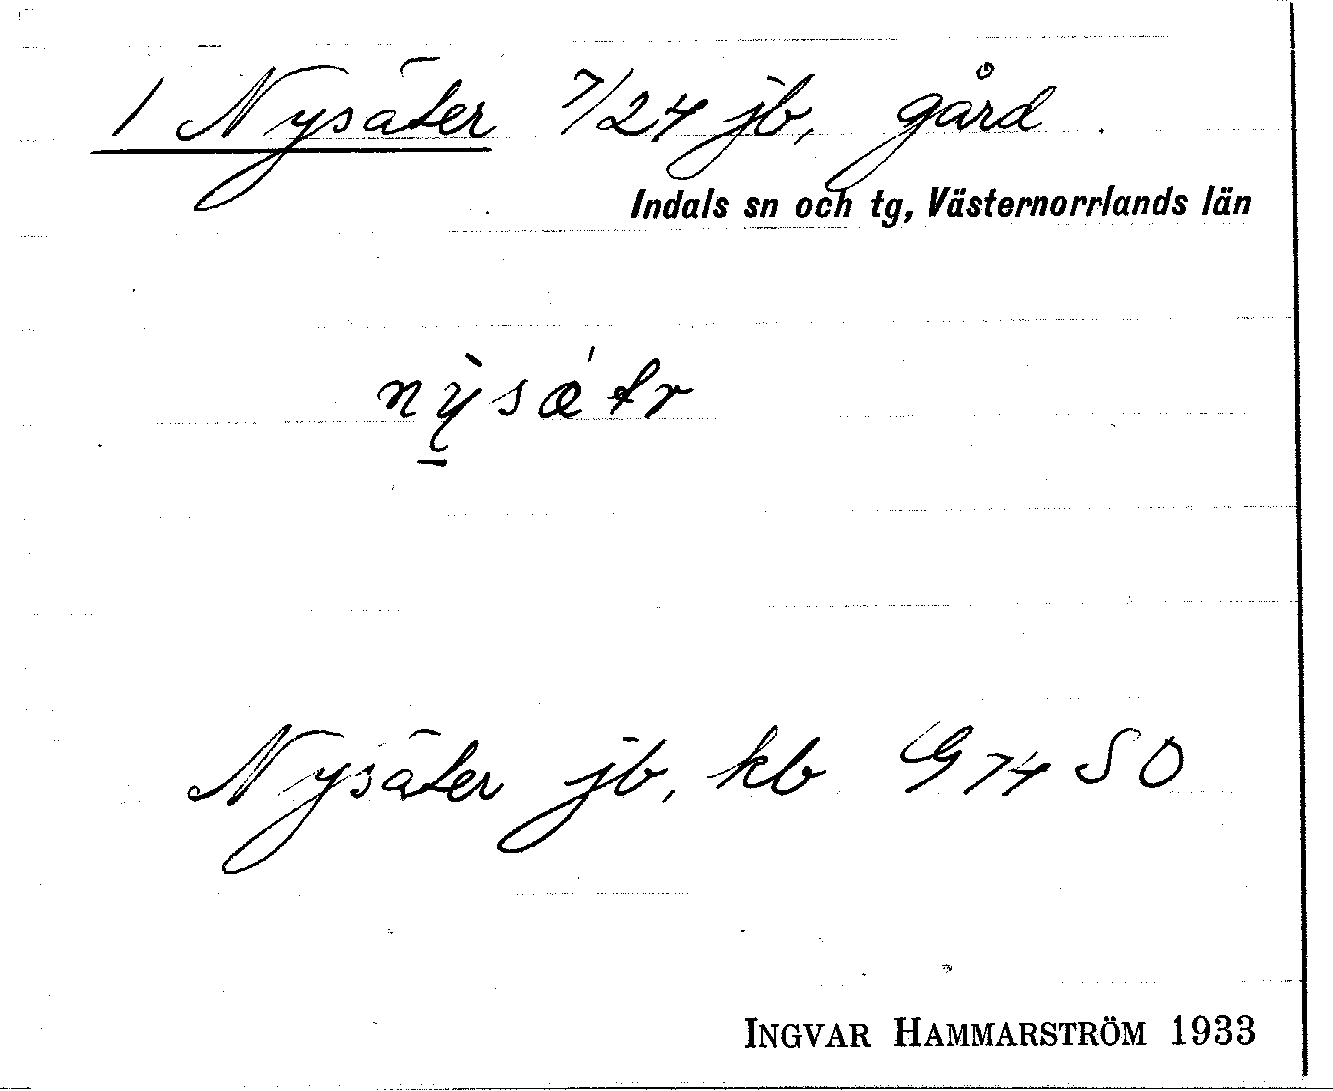 1 Nysäter 7/24 jb, gård
Indals sn och tg, Västernorrlands län
nỳsæ´tr
Nysäter jb, kb G 74 SO
INGVAR HAMMARSTRÖM 1933